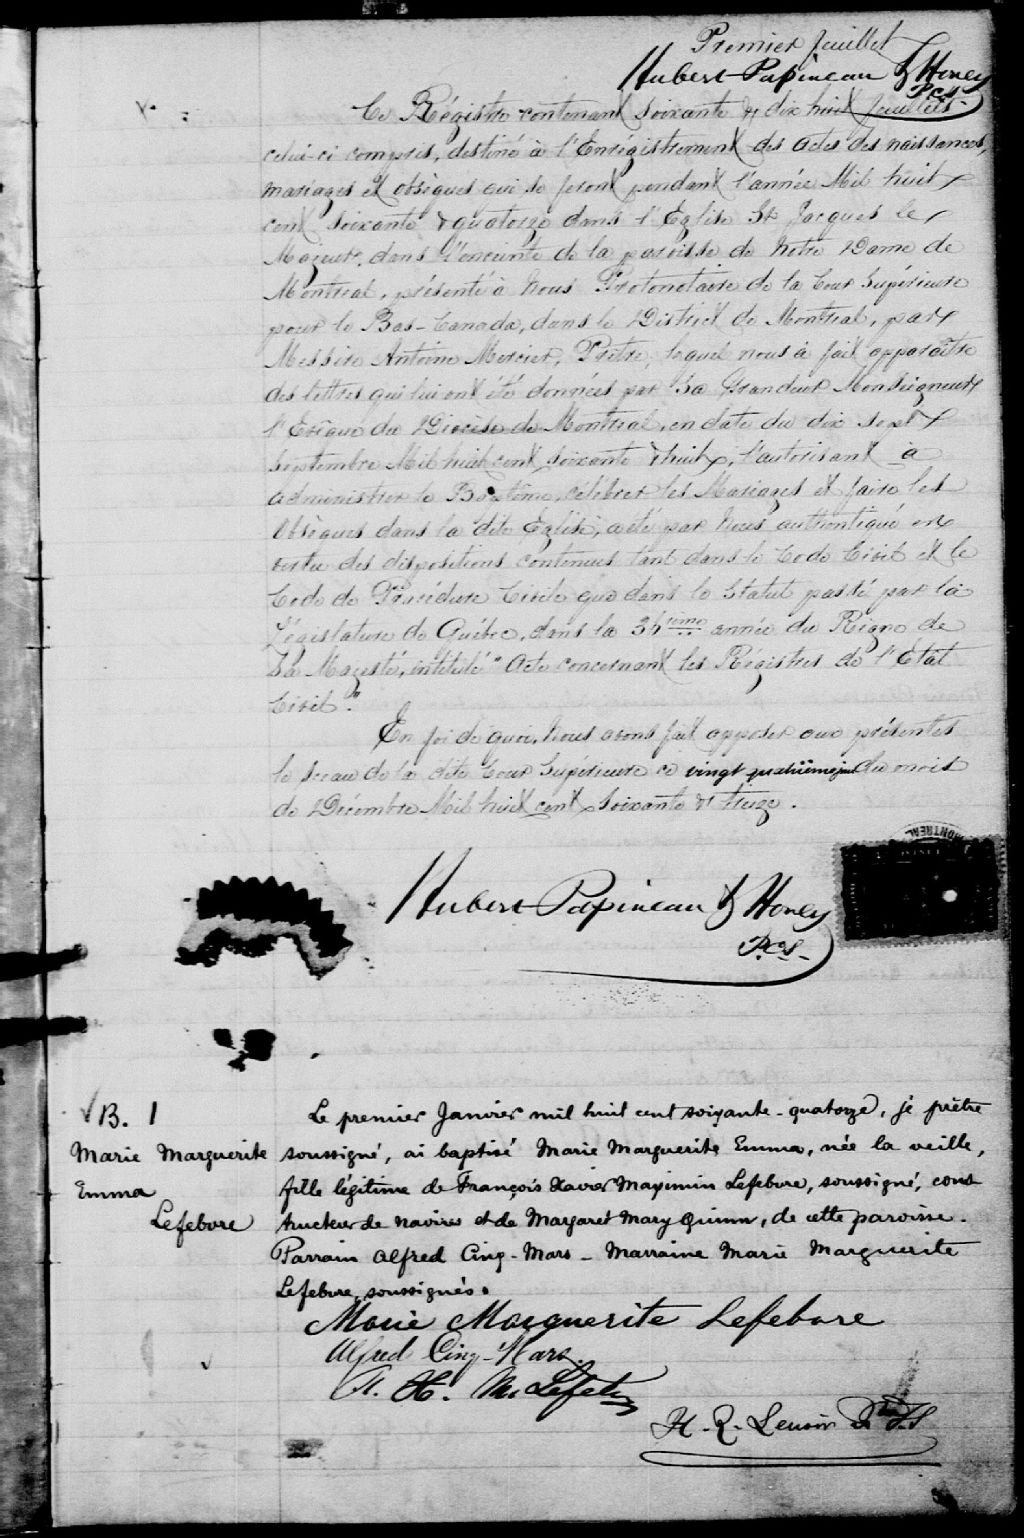 Premier feuillet
Hubert Papineau & Honey
P.C.S.
Ce Régistre contenant soixante & dix huit feuillets
celui-ci compris, destiné à l'Enrégistrement des actes des naissances,
mariages et obsèques qui se feront pendant l'année Mil huit
cent soixante & quatorze dans l'Eglise St Jacques le
Majeur, dans l'enceinte de la paroisse de Notre Dame de
Montreal, présenté à Nous Protonotaire de la Cour Supérieure
pour le Bas-Canada, dans le District de Montreal, par
Messire Antoine Mercier, Prêtre, lequel nous à fait apparaître
des lettres qui lui ont été données par Sa Grandeur Monseigneur
l'Evêque du Diocèse de Montreal, en date du dix sept
Septembre Mil huit cent soixante & huit, l'autorisant à
administrer le Baptême, célébrer les Mariages et faire les
Obsèques dans la dite Eglise, a été par Nous authentiqué en
vertu des dispositions contenues tant dans le Code Civil et le
Code de Procédure Civile que dans le Statut passé par la
Législature de Québec, dans la année du Règne de
Sa Majesté, intitulé "Acte concernant les Régistres de l'Etat
Civil."
En foi de quoi, Nous avons fait apposer aux présentes
le sceau de la dite Cour Supérieure ce vingt quatrième jour du mois
de Décembre Mil huit cent soixante & treize.
MONTREAL
Hubert Papineau & Honey
P.C.S.
B. 1
Marie Marguerite
Emma
Lefebvre
Le premier Janvier mil huit cent soixante-quatorze, je prêtre
soussigné, ai baptisé Marie Marguerite Emma, née la veille,
fille légitime de François Xavier Maximin Lefebvre, soussigné, cons
tructeur de navires et de Margaret Mary Quinn, de cette paroisse.
Parrain Alfred Cinq-Mars - Marraine Marie Marguerite
Lefebvre, soussignés.
Marie Marguerite Lefebvre
Alfred Cinq-Mars
H. R. Lenoir Ptre S.S.